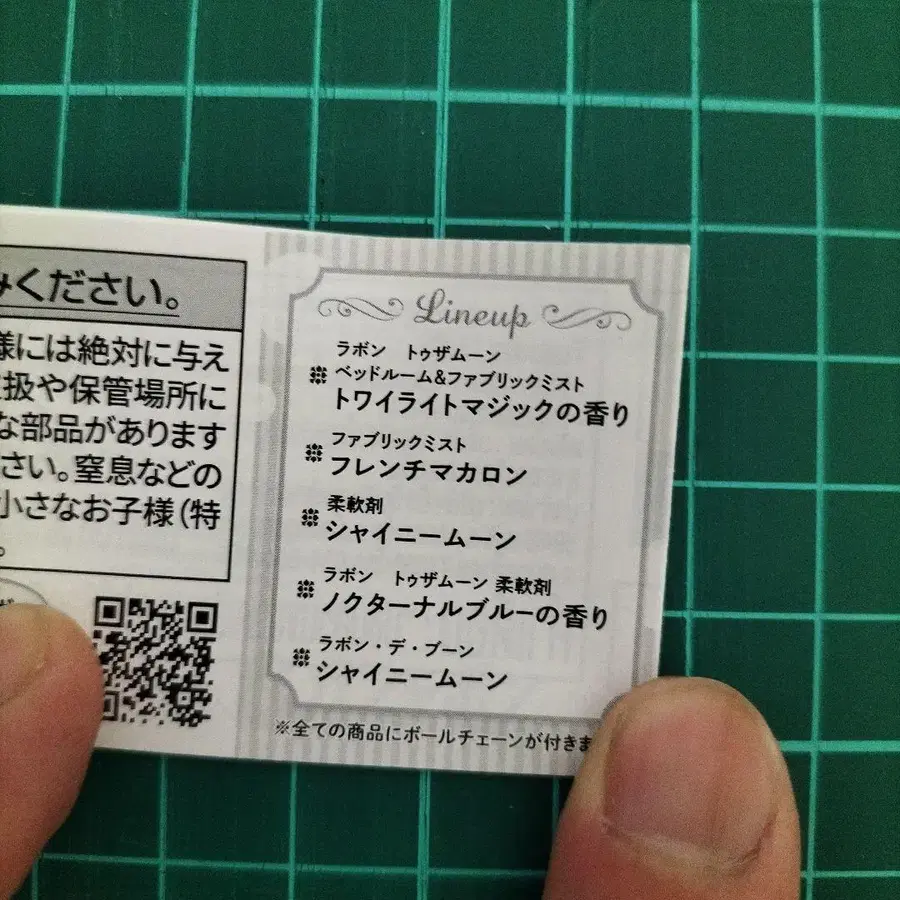 みください。
様には絶対に与え
扱や保管場所に
な部品があります
さい。窒息などの
小さなお子様(特
。
Lineup
ラボン トゥザムーン
ベッドルーム&ファブリックミスト
トワイライトマジックの香り
ファブリックミスト
フレンチマカロン
柔軟剤
シャイニームーン
ラボン トゥザムーン 柔軟剤
ノクターナルブルーの香り
ラボン・デ・ブーン
シャイニームーン
※全ての商品にボールチェーンが付きま